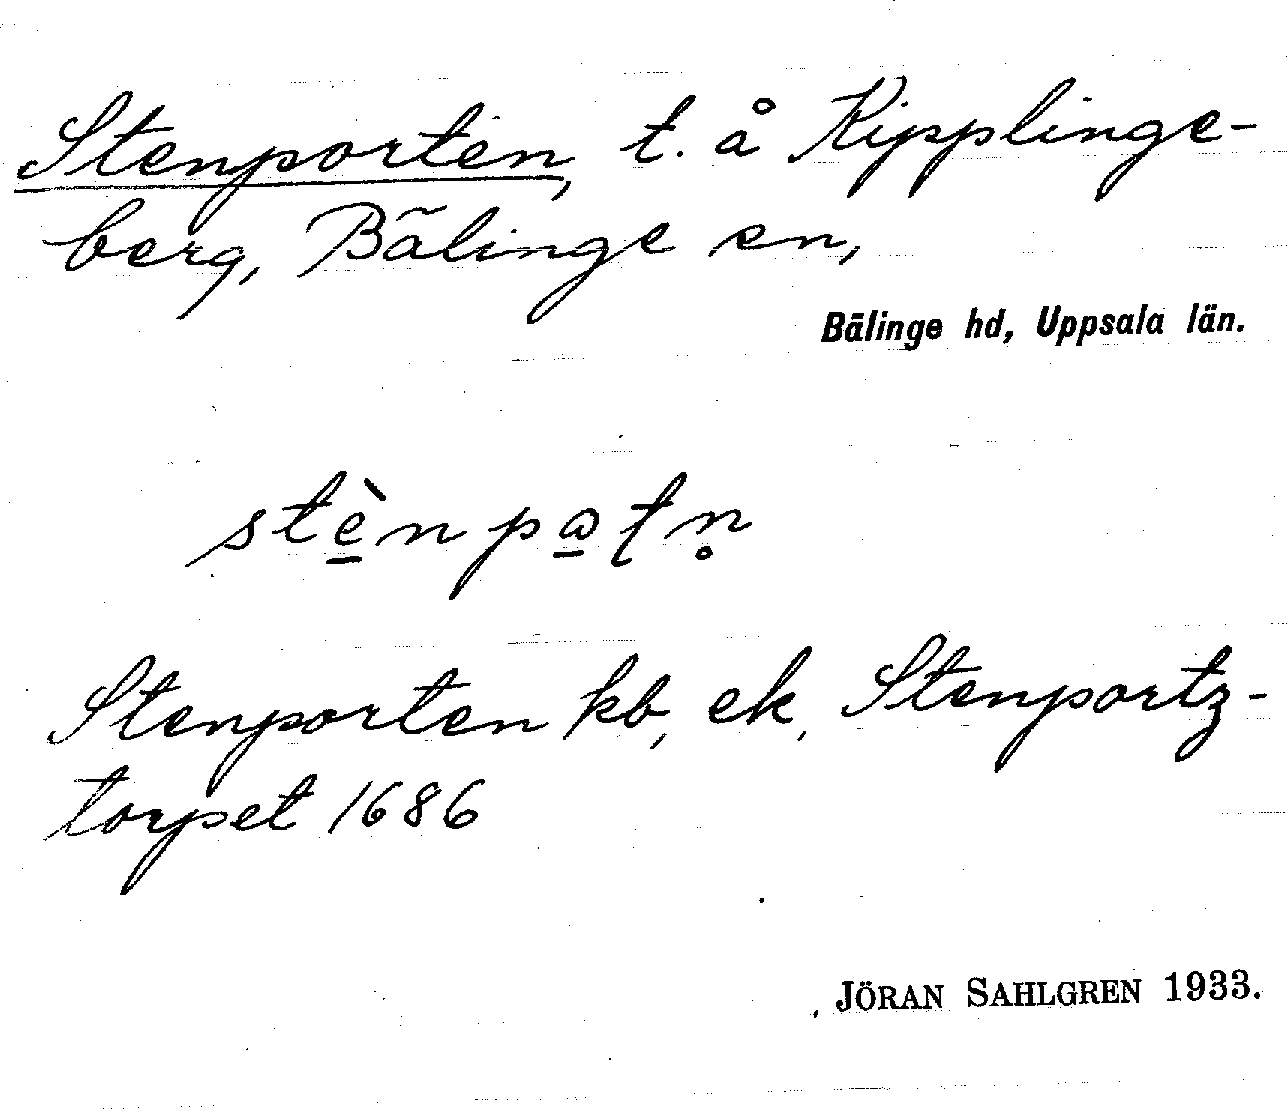 Stenporten, t. å Kipplinge-
berg, Bälinge sn,
Bälinge hd, Uppsala län.
stè̱npa̱tn̥
Stenporten kb, ek, Stenportz-
torpet 1686
JÖRAN SAHLGREN 1933.